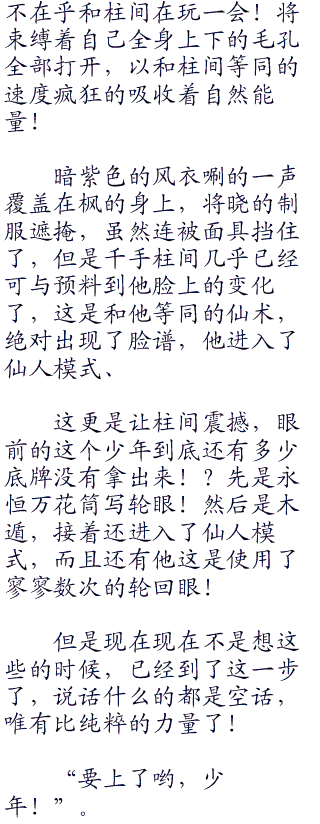 不在乎和柱间在玩一会！将
束缚着自己全身上下的毛孔
全部打开，以和柱间等同的
速度疯狂的吸收着自然能
量！
暗紫色的风衣唰的一声
覆盖在枫的身上，将晓的制
服遮掩，虽然连被面具挡住
了，但是千手柱间几乎已经
可与预料到他脸上的变化
了，这是和他等同的仙术，
绝对出现了脸谱，他进入了
仙人模式、
这更是让柱间震撼，眼
前的这个少年到底还有多少
底牌没有拿出来！？先是永
恒万花筒写轮眼！然后是木
遁，接着还进入了仙人模
式，而且还有他这是使用了
寥寥数次的轮回眼！
但是现在现在不是想这
些的时候，已经到了这一步
了，说话什么的都是空话，
唯有比纯粹的力量了！
“要上了哟，少
年！”。